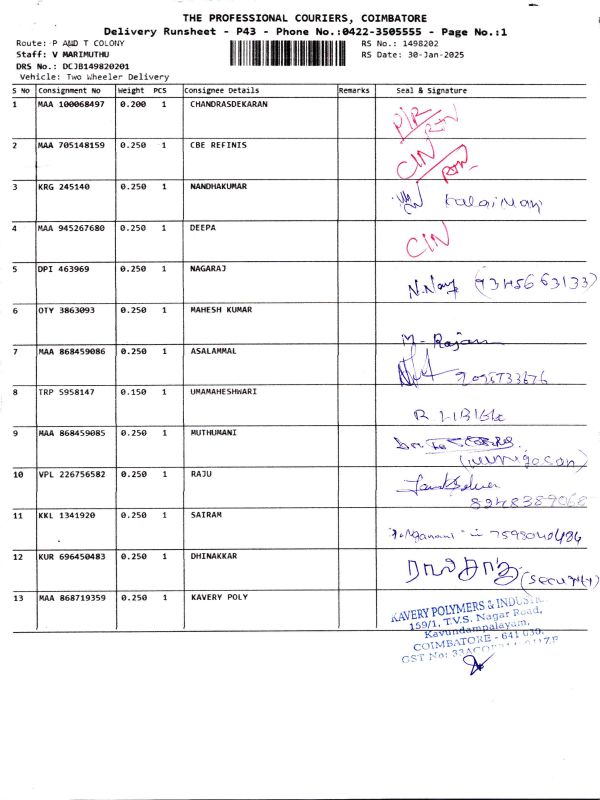 THE PROFESSIONAL COURIERS, COIMBATORE
Delivery Runsheet - P43 - Phone No.:0422-3505555 - Page No.:1
Route: P AND T COLONY
RS No.: 1498202
Staff: V MARIMUTHU
RS Date: 30-Jan-2025
DRS No.: DCJB149820201
Vehicle: Two Wheeler Delivery
S No Consignment No Weight PCS Consignee Details Remarks Seal & Signature
1 MAA 100068497 0.200 1 CHANDRASDEKARAN
P/R RTN
2 MAA 705148159 0.250 1 CBE REFINIS
CIN RTN
3 KRG 245140 0.250 1 NANDHAKUMAR
4 MAA 945267680 0.250 1 DEEPA
CIN
5 DPI 463969 0.250 1 NAGARAJ
(9345663133)
6 OTY 3863093 0.250 1 MAHESH KUMAR
M. Rajan
7 MAA 868459086 0.250 1 ASALAMMAL
8 TRP 5958147 0.150 1 UMAMAHESHWARI
9 MAA 868459085 0.250 1 MUTHUMANI
(murigosan)
10 VPL 226756582 0.250 1 RAJU
8248389068
11 KKL 1341920 0.250 1 SAIRAM
7598040484
12 KUR 696450483 0.250 1 DHINAKKAR
(security)
13 MAA 868719359 0.250 1 KAVERY POLY
KAVERY POLYMERS & INDUS
159/1, T.V.S. Nagar Road,
Kavundampalayam,
COIMBATORE - 641 030.
GST No: